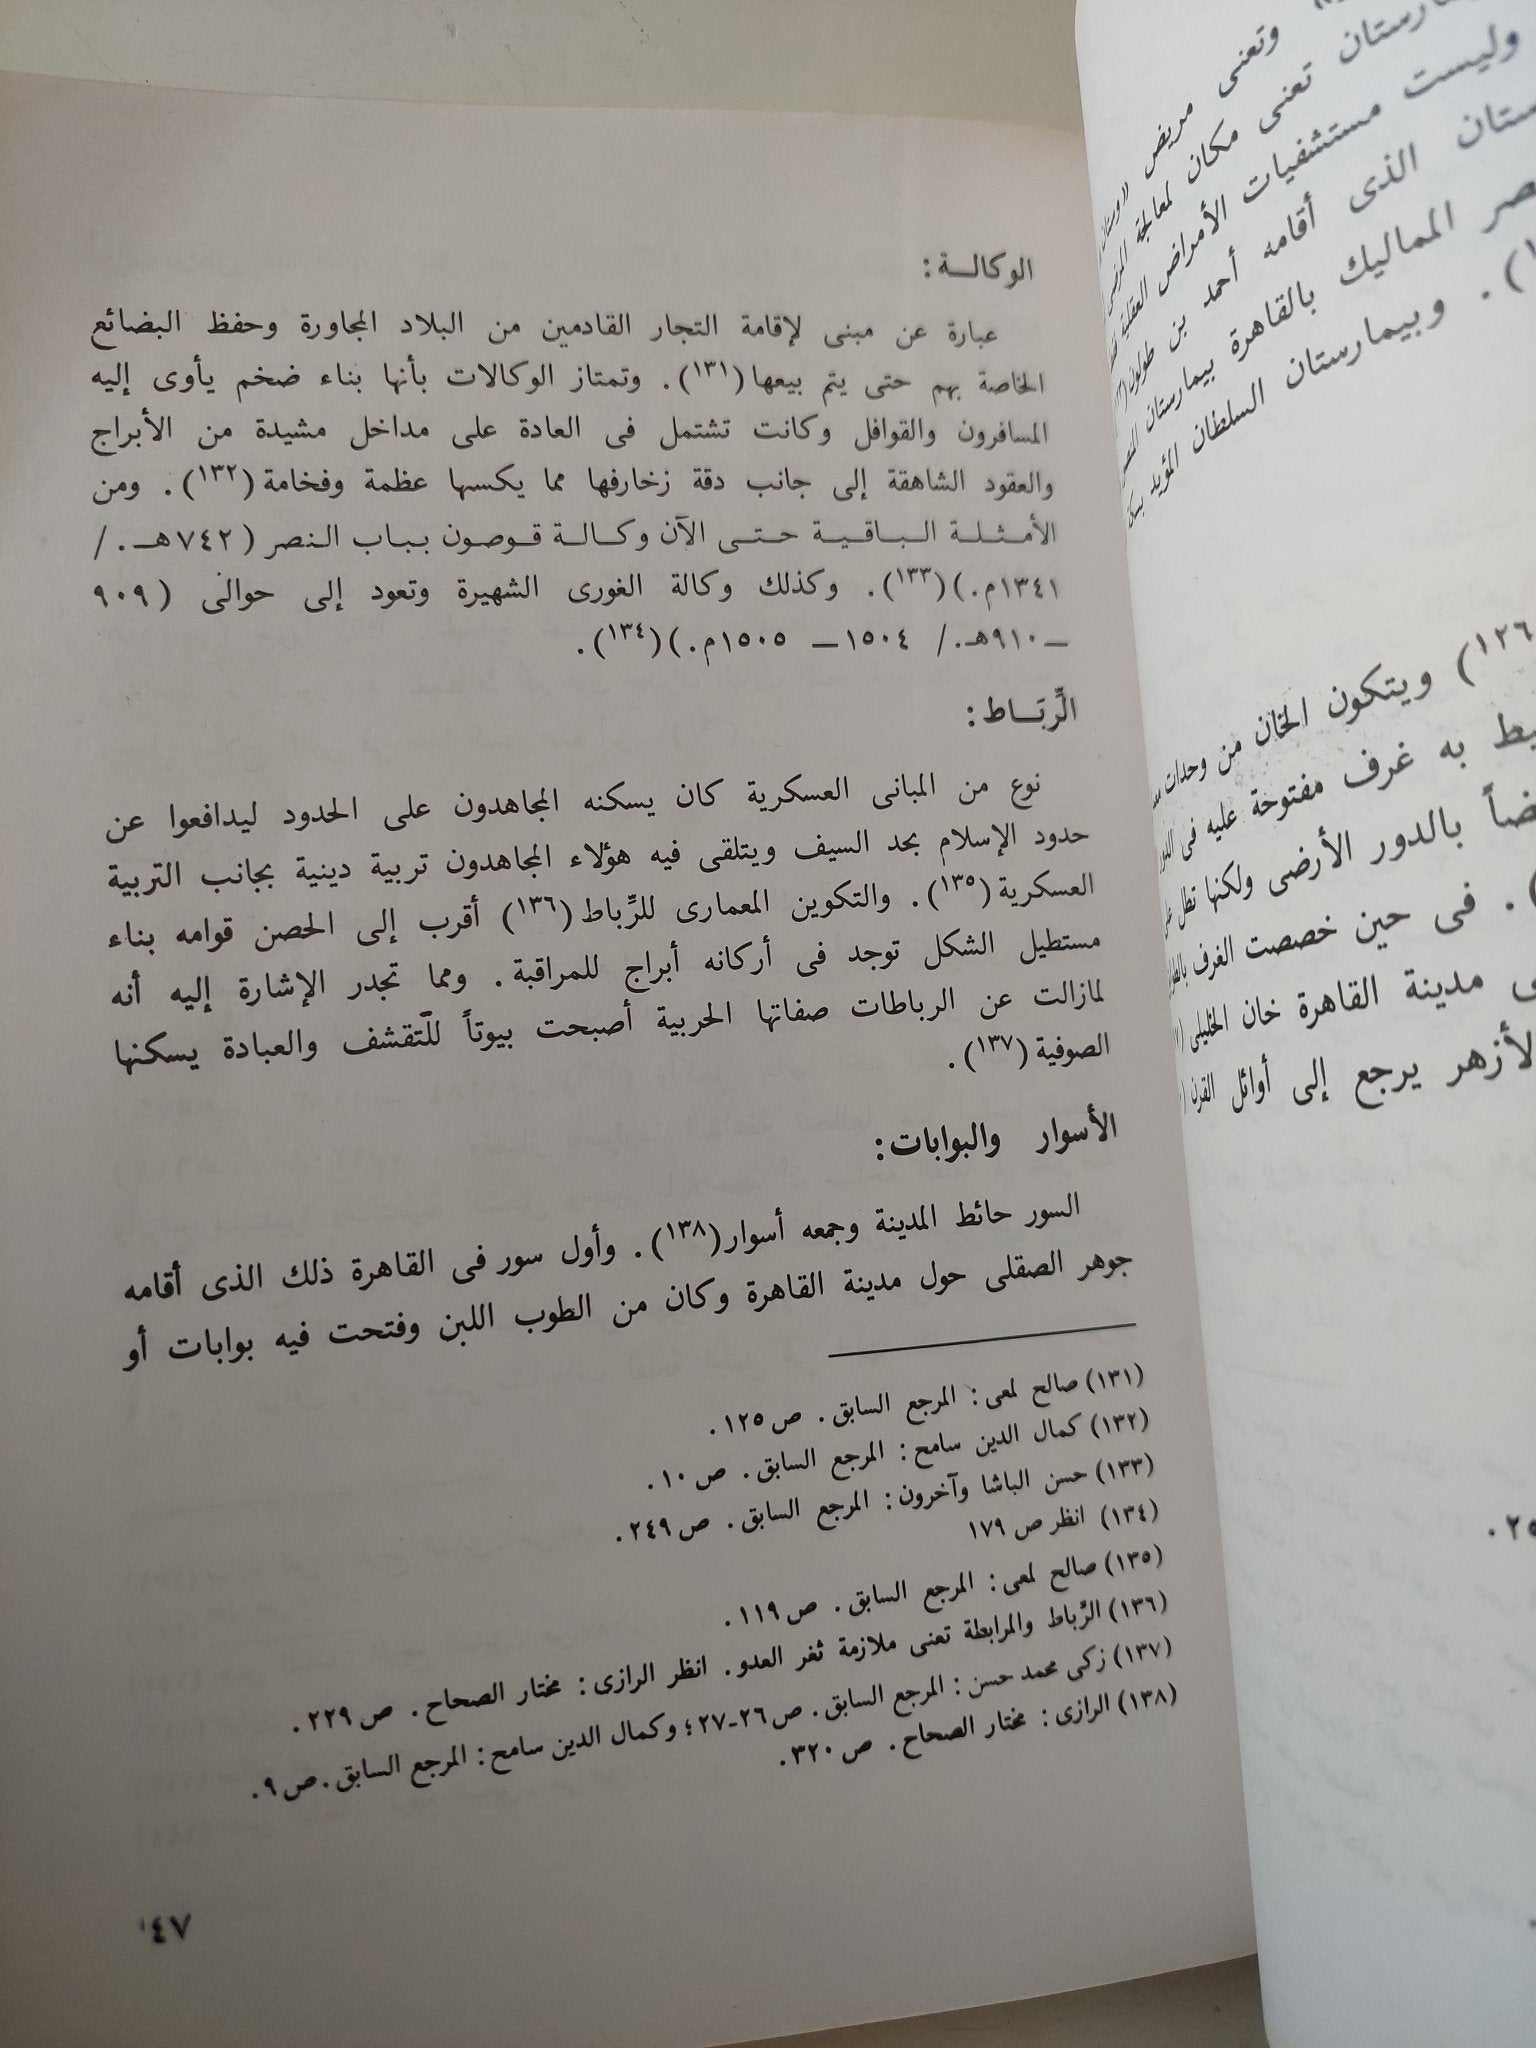 الوكالــة:
عبارة عن مبنى لإقامة التجار القادمين من البلاد المجاورة وحفظ البضائع
الخاصة بهم حتى يتم بيعها(١٣١). وتمتاز الوكالات بأنها بناء ضخم يأوى إليه
المسافرون والقوافل وكانت تشتمل فى العادة على مداخل مشيدة من الأبراج
والعقود الشاهقة إلى جانب دقة زخارفها مما يكسها عظمة وفخامة(١٣٢). ومن
الأمثلة الباقية حتى الآن وكالة قوصون بباب النصر (٧٤٢هـ./
١٣٤١م.)(١٣٣). وكذلك وكالة الغورى الشهيرة وتعود إلى حوالى (٩٠٩
ــ٩١٠هـ./ ١٥٠٤ــ ١٥٠٥م.)(١٣٤).
الرِّبَــاط:
نوع من المبانى العسكرية كان يسكنه المجاهدون على الحدود ليدافعوا عن
حدود الإسلام بحد السيف ويتلقى فيه هؤلاء المجاهدون تربية دينية بجانب التربية
العسكرية(١٣٥). والتكوين المعمارى للرِّباط(١٣٦) أقرب إلى الحصن قوامه بناء
مستطيل الشكل توجد فى أركانه أبراج للمراقبة. ومما تجدر الإشارة إليه أنه
لمازالت عن الرباطات صفاتها الحربية أصبحت بيوتاً للتّقشف والعبادة يسكنها
الصوفية(١٣٧).
الأسوار والبوابات:
السور حائط المدينة وجمعه أسوار(١٣٨). وأول سور فى القاهرة ذلك الذى أقامه
جوهر الصقلى حول مدينة القاهرة وكان من الطوب اللبن وفتحت فيه بوابات أو
(١٣١) صالح لمعى: المرجع السابق. ص١٢٥.
(١٣٢) كمال الدين سامح: المرجع السابق. ص١٠.
(١٣٣) حسن الباشا وآخرون: المرجع السابق. ص٢٤٩.
(١٣٤) انظر ص ١٧٩
(١٣٥) صالح لمعى: المرجع السابق. ص١١٩.
(١٣٦) الرِّباط والمرابطة تعنى ملازمة ثغر العدو. انظر الرازى: مختار الصحاح. ص٢٢٩.
(١٣٧) زكى محمد حسن: المرجع السابق. ص٢٦-٢٧؛ وكمال الدين سامح: المرجع السابق. ص٩.
(١٣٨) الرازى: مختار الصحاح. ص٣٢٠.
٤٧
وتعنى مريض
تعنى مكان لمعالجة
وليست مستشفيات الأمراض العقلية
الذى أقامه أحمد بن طولون
المماليك بالقاهرة بيمارستان
. وبيمارستان السلطان المؤيد
١٢٦) ويتكون الخان من وحدات
به غرف مفتوحة عليه فى
بالدور الأرضى ولكنها تطل
. فى حين خصصت الغرف
مدينة القاهرة خان الخليلى
الأزهر يرجع إلى أوائل القرن